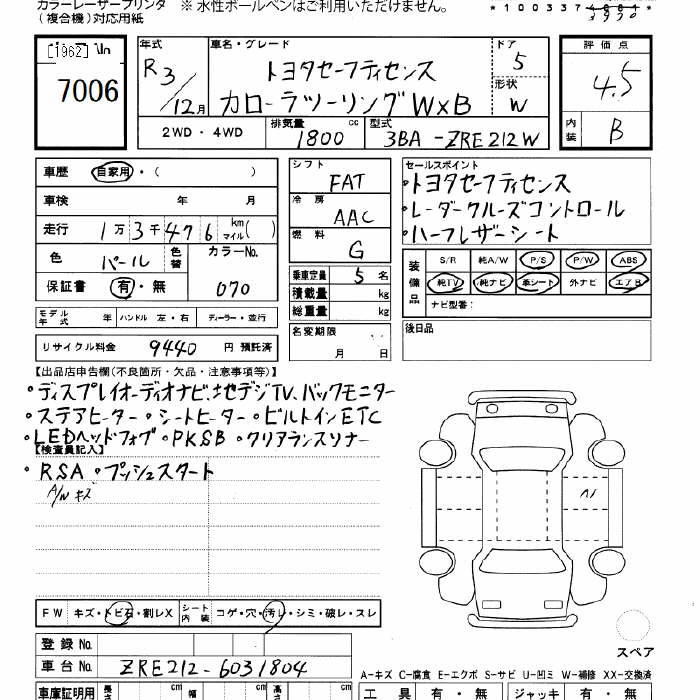 カラーレーザープリンタ ※ 水性ボールペンはご利用いただけません。
(複合機)対応用紙
[1962]
7006
年式 車名・グレード ドア 評価点
R3/12月 トヨタセーフティセンス 5 4.5
カローラツーリングW×B 形状 W
2WD・4WD 排気量 1800 cc 型式 3BA-ZRE212W 内装 B
車歴 自家用・( ) シフト FAT セールスポイント
車検 年 月 冷房 AAC ・トヨタセーフティセンス
走行 1万3千476 km マイル( ) 燃料 G ・レーダークルーズコントロール
・ハーフレザーシート
色 パール 色替 カラーNo. 070 乗車定員 5名
保証書 有・無 積載量 kg
総重量 kg
装備 S/R 純A/W P/S P/W ABS
純TV 純ナビ 革シート 外ナビ エアB
ナビ型番:
モデル年式 年 ハンドル 左・右 ディーラー・並行 名変期限 月 日 後日品
リサイクル料金 9440 円 預託済
【出品店申告欄(不良箇所・欠品・注意事項等)】
・ディスプレイオーディオナビ、地デジTV、バックモニター
・ステアヒーター・シートヒーター・ビルトインETC
・LEDヘッドフォグ・PKSB・クリアランスソナー
【検査員記入】
・RSA・プッシュスタート
A/Wキズ
A1
FW キズ・トビ石・割レX シート内張 コゲ・穴・汚レ・シミ・破レ・スレ
登録No.
車台No. ZRE212-6031804
スペア
A-キズ C-腐食 E-エクボ S-サビ U-凹ミ W-補修 XX-交換済
車庫証明用 長さ cm 幅 cm 高さ cm 工具 有・無 ジャッキ 有・無